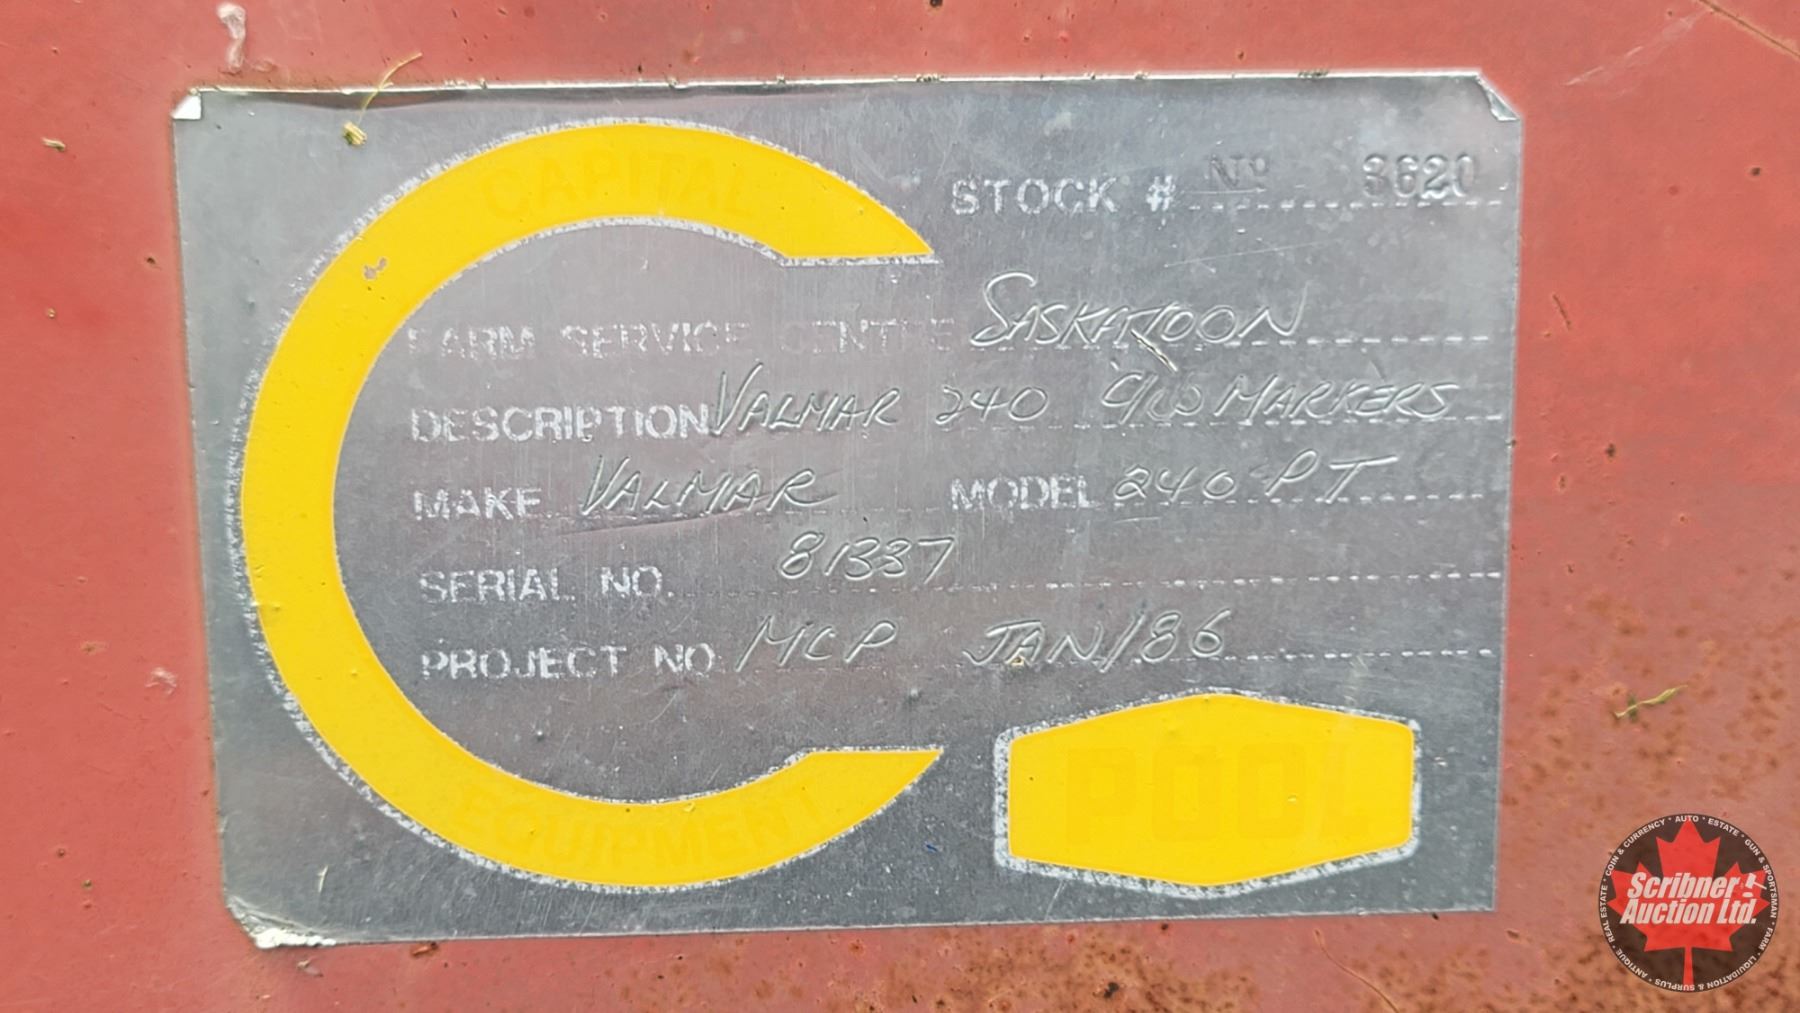 CAPITAL
STOCK # No 3620
FARM SERVICE CENTRE SASKATOON
DESCRIPTION VALMAR 240 C/W MARKERS
MAKE VALMAR MODEL 240 PT
SERIAL NO. 81337
PROJECT NO. MCP JAN/86
EQUIPMENT
POOL
COIN & CURRENCY * AUTO * ESTATE * GUN & SPORTSMAN * FARM * LIQUIDATION & SURPLUS * ANTIQUE * REAL ESTATE *
Scribner
Auction Ltd.